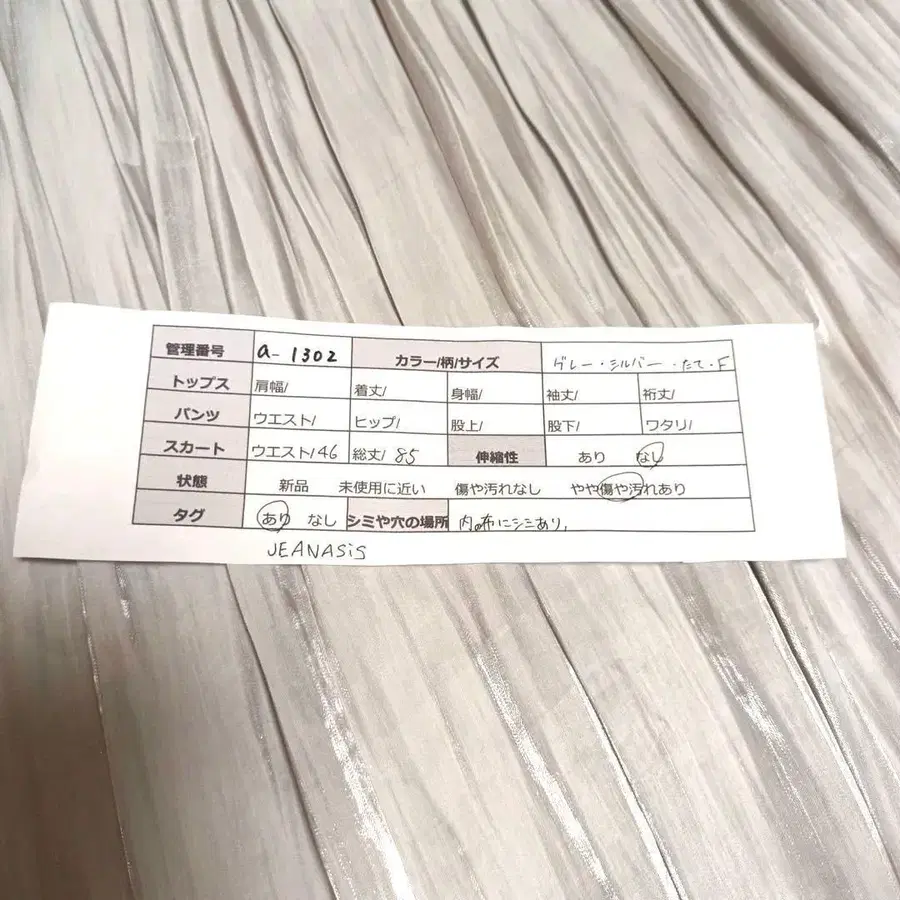 管理番号 a-1302 カラー/柄/サイズ グレー・シルバー・たて・F
トップス 肩幅/ 着丈/ 身幅/ 袖丈/ 裄丈/
パンツ ウエスト/ ヒップ/ 股上/ 股下/ ワタリ/
スカート ウエスト/46 総丈/85 伸縮性 あり なし
状態 新品 未使用に近い 傷や汚れなし やや傷や汚れあり
タグ あり なし シミや穴の場所 内布にシミあり。
JEANASiS